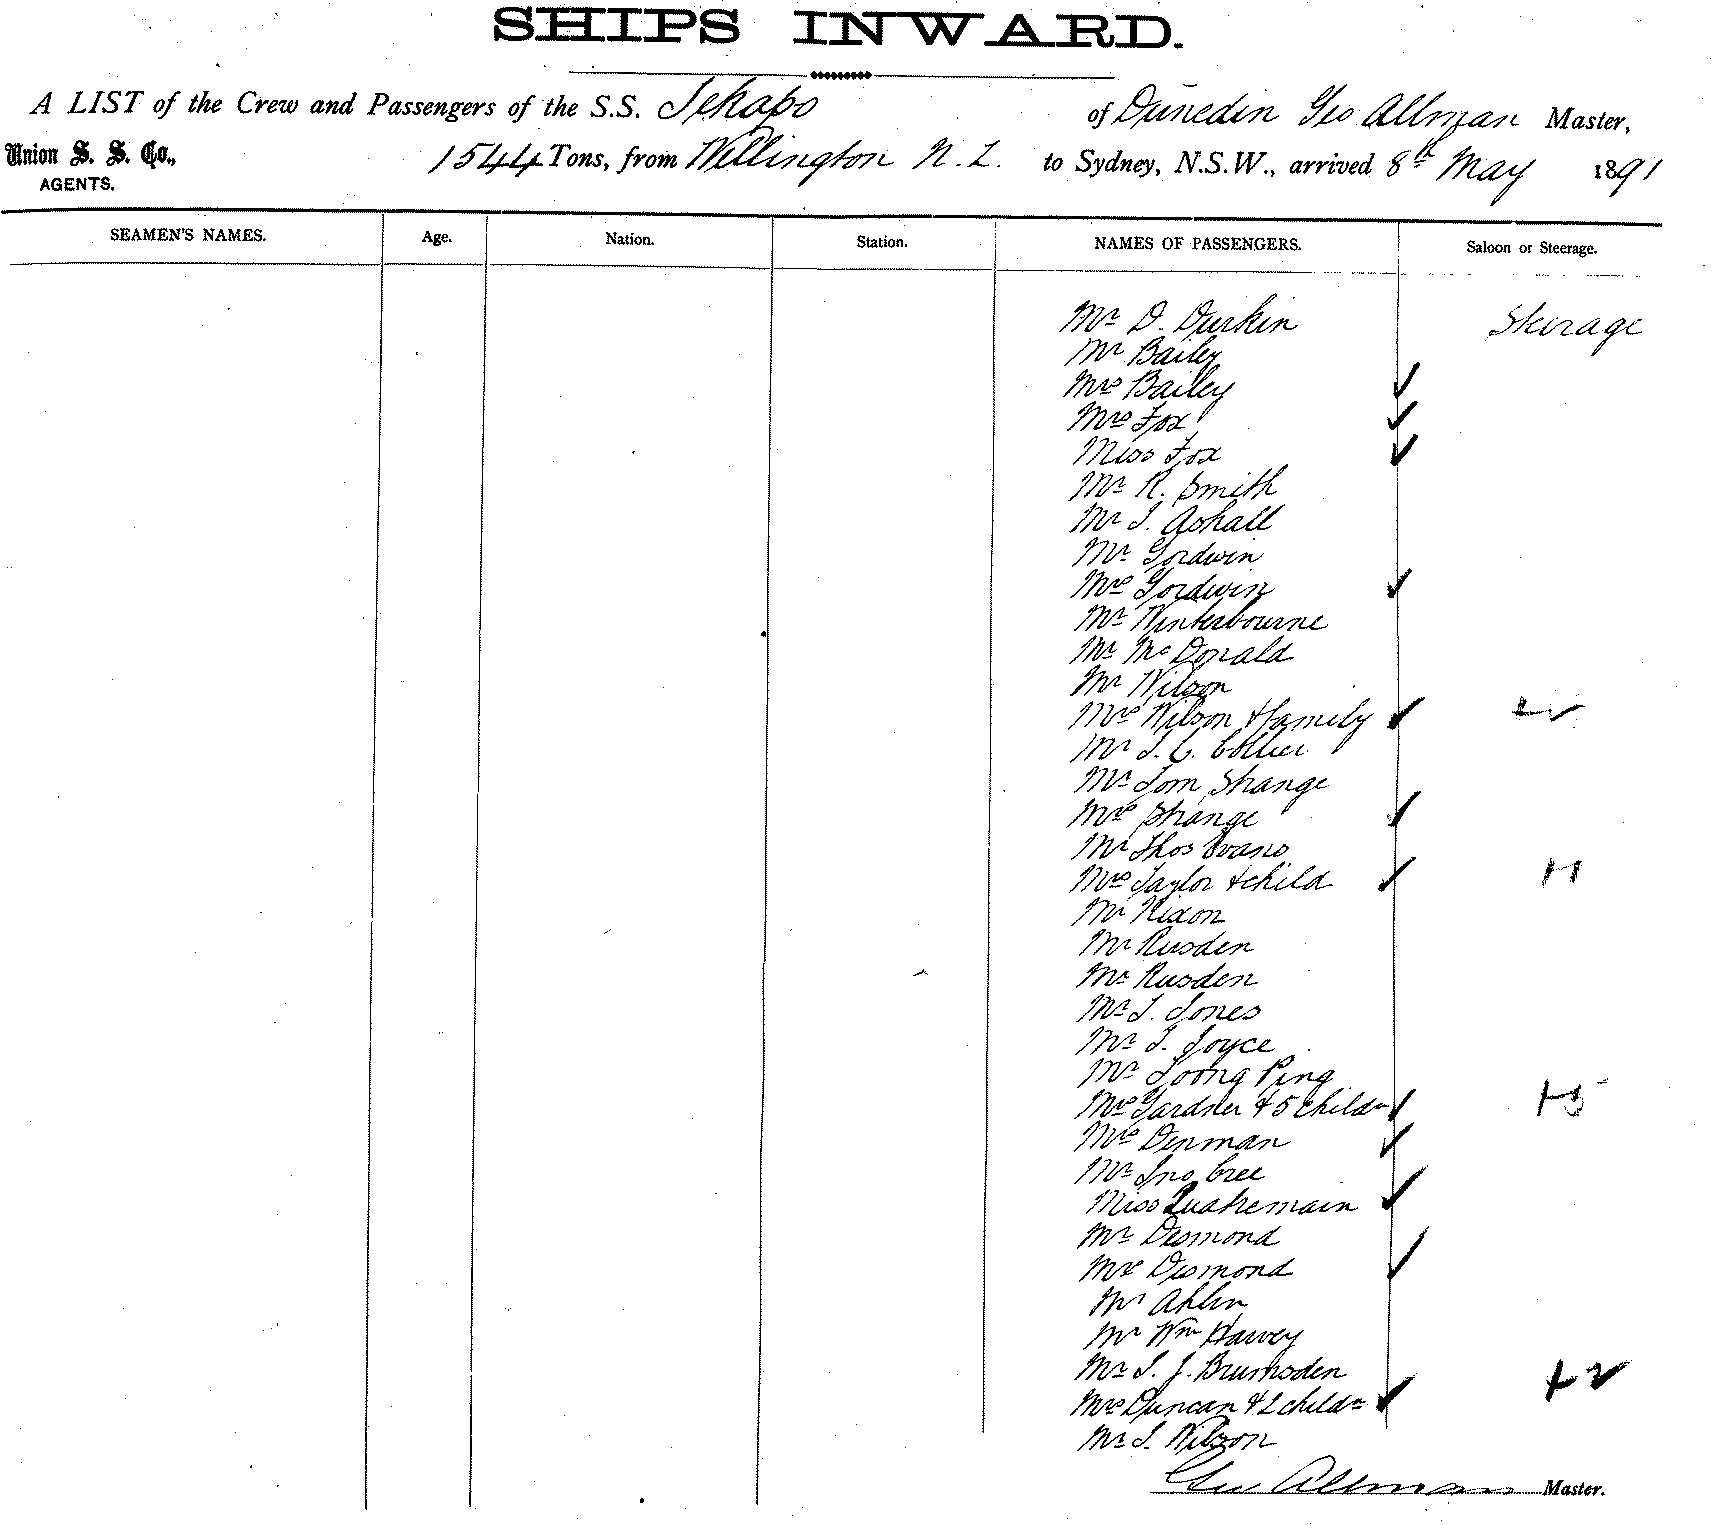 SHIPS INWARD.
A LIST of the Crew and Passengers of the S.S. Tekapo of Dunedin Geo Allman Master,
Union S. S. Co., 1544 Tons, from Wellington N. Z. to Sydney, N.S.W., arrived 8th May 1891
AGENTS.
SEAMEN'S NAMES. Age. Nation. Station. NAMES OF PASSENGERS. Saloon or Steerage.
Mr D. Durkin Steerage
Mr Bailey
Mrs Bailey
Mrs Fox
Miss Fox
Mr R. Smith
Mr J. Ashall
Mr Gordwin
Mrs Gordwin
Mr Winterbourne
Mr McDonald
Mr Wilson
Mrs Wilson & family
Mr J. C. Collier
Mr Tom Strange
Mrs Strange
Mr Thos Evans
Mrs Taylor & child +1
Mr Nixon
Mr Rusden
Mr Rusden
Mr J. Jones
Mr J. Joyce
Mr Ping
Mrs Gardner & 5 childn +5
Mrs Denman
Mr Jno Cree
Miss Quakemain
Mr Desmond
Mrs Desmond
Mr Ahlin
Mr Wm Harvey
Mr J. J. Brumsden
Mrs Duncan & 2 childn +2
Mr J. Wilson
Geo Allman Master.